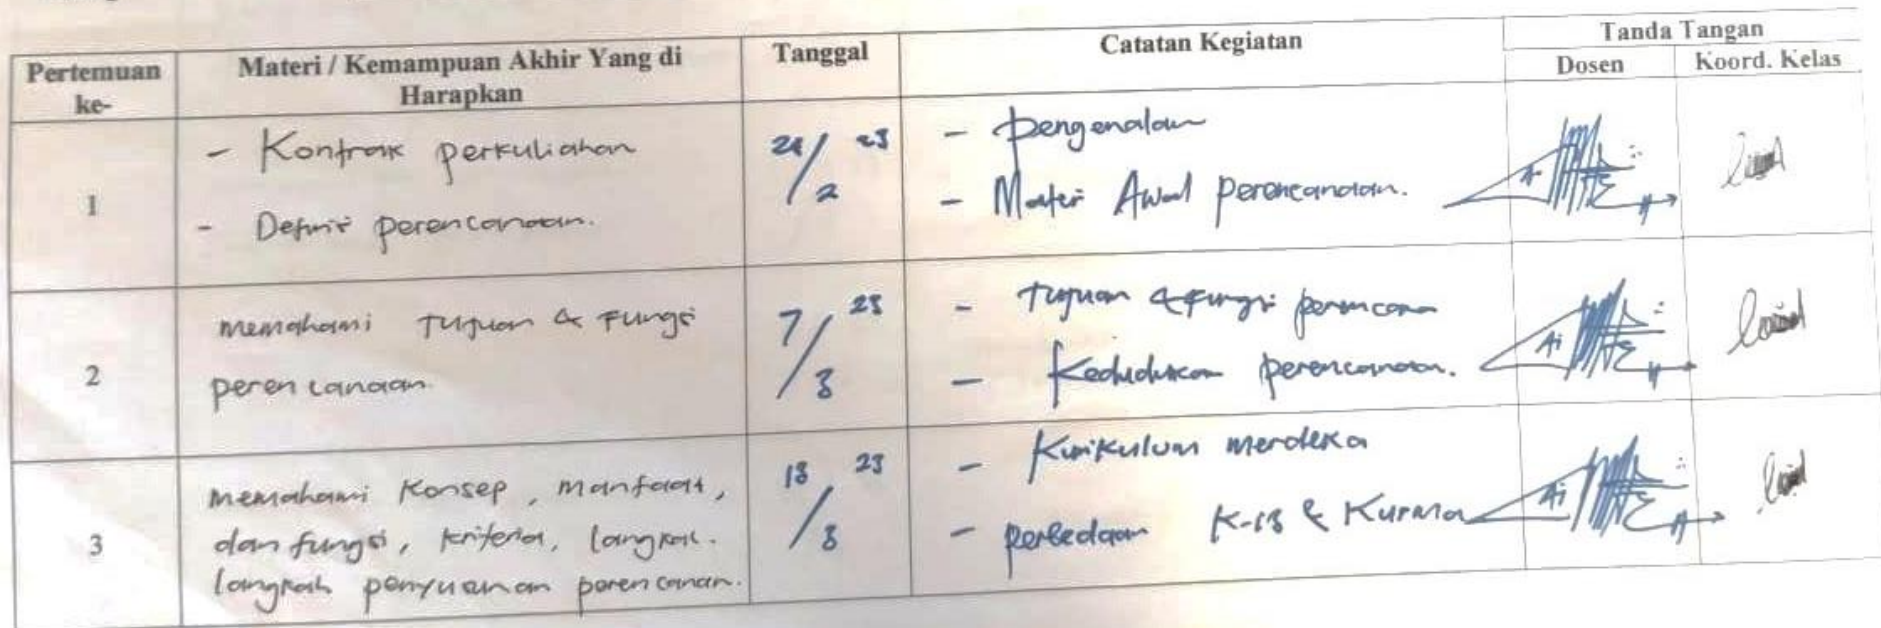 Tanda Tangan
Pertemuan ke-
Materi / Kemampuan Akhir Yang di Harapkan
Tanggal
Catatan Kegiatan
Dosen
Koord. Kelas
1
- Kontrak perkuliahan
- Definisi perencanaan.
/ 23
2
- Pengenalan
- Materi Awal perencanaan.
2
memahami Tujuan & Fungsi
perencanaan.
7 / 23
3
- Tujuan & fungsi perencana
- Kedudukan perencanaan.
3
memahami Konsep, manfaat,
dan fungsi, kriteria, langkah-
langkah penyusunan perencanan.
/ 23
3
- Kurikulum merdeka
- perbedaan K-13 & Kurma